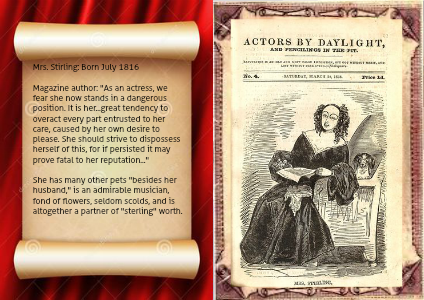 Mrs. Stirling: Born July 1816
Magazine author: "As an actress, we
fear she now stands in a dangerous
position. It is her..great tendency to
overact every part entrusted to her
care, caused by her own desire to
please. She should strive to dispossess
herself of this, for if persisted it may
prove fatal to her reputation..."
She has many other pets "besides her
husband," is an admirable musician,
fond of flowers, seldom scolds, and is
altogether a partner of "sterling" worth.
ACTORS BY DAYLIGHT,
AND PENCILINGS IN THE PIT.
No. 4. SATURDAY, MARCH 24, 1838. Price 1d.
MRS. STIRLING,